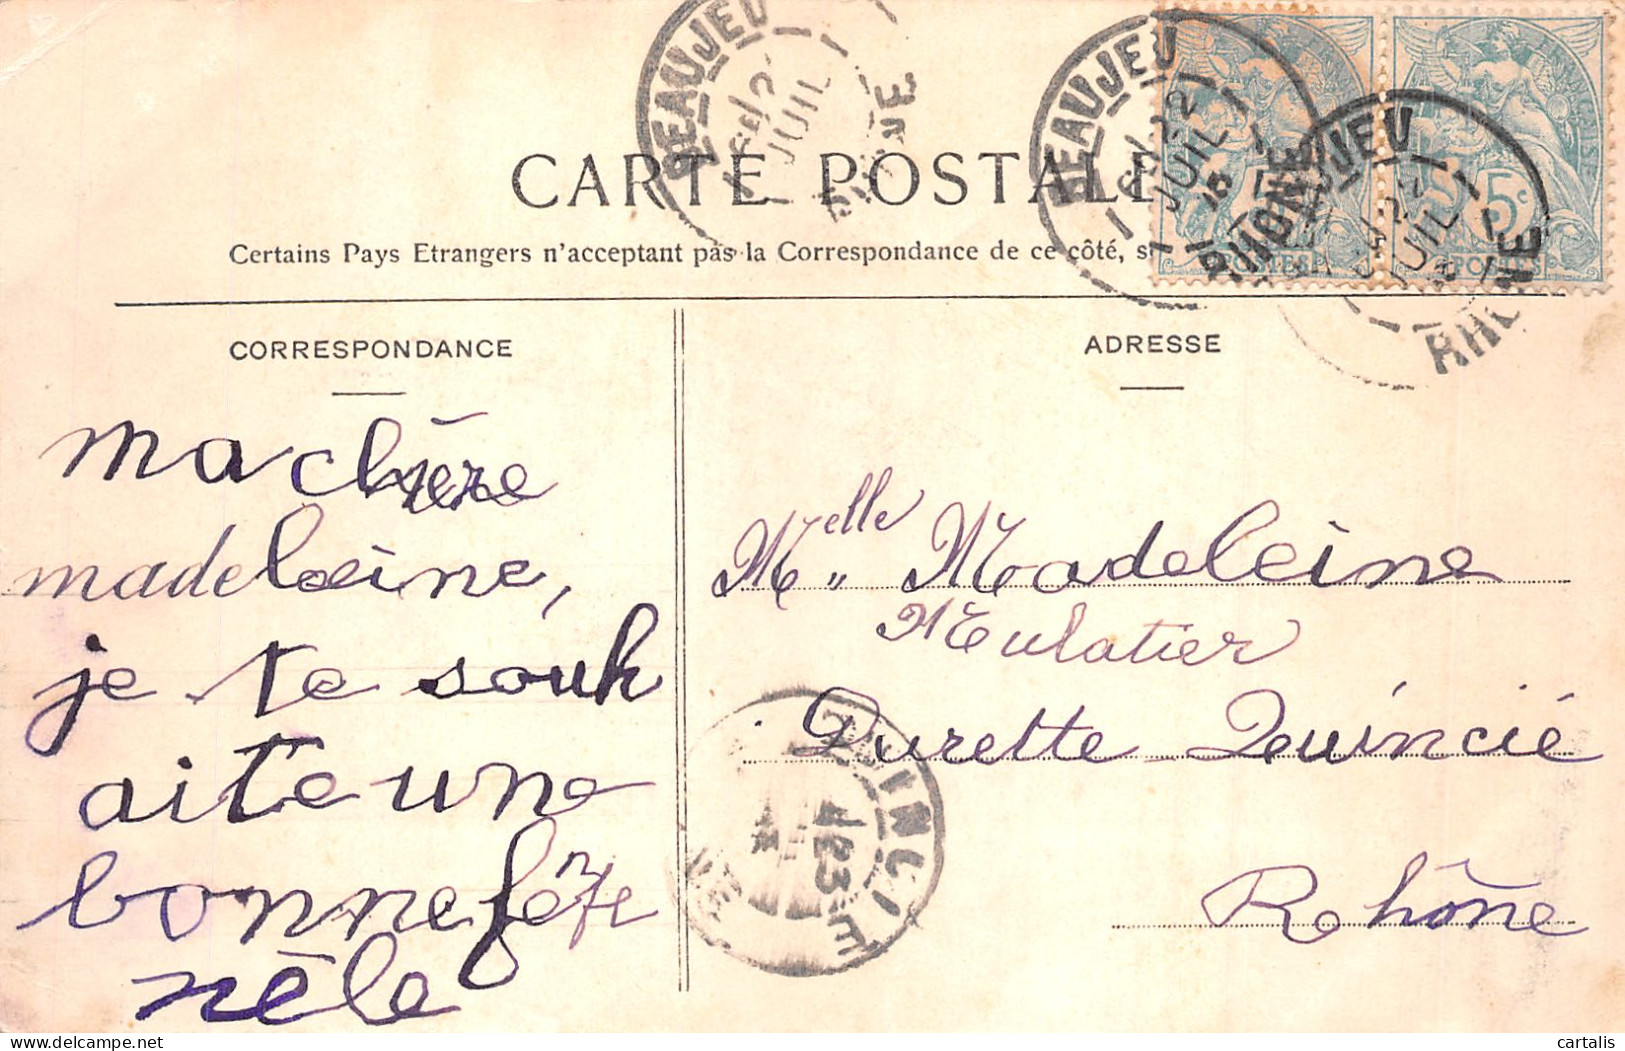 CARTE POSTALE
Certains Pays Etrangers n'acceptant pas la Correspondance de ce côté, s
CORRESPONDANCE
ma chère
madeleine,
je te souh
aite une
bonne fête
nèle
ADRESSE
Melle Madeleine
Mulatier
Durette Quincié
Rhône
BEAUJEU
JUIL
RHONE
BEAUJEU
22
JUIL
RHONE
BEAUJEU
22
JUIL
RHONE
5c
POSTES
QUINCIE
23
cartalis